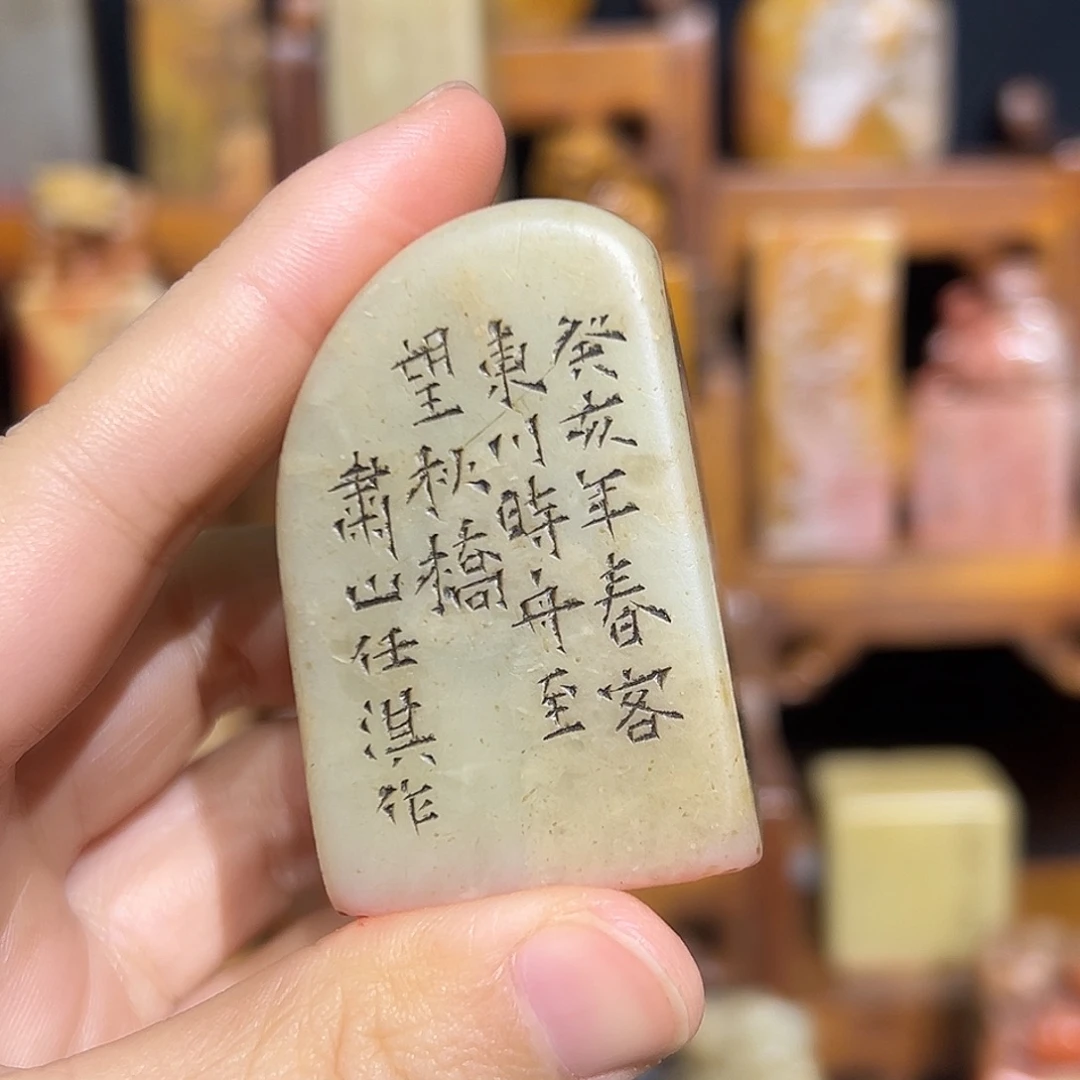 癸亥年春客
東川時舟至
望秋橋
蕭山任淇作